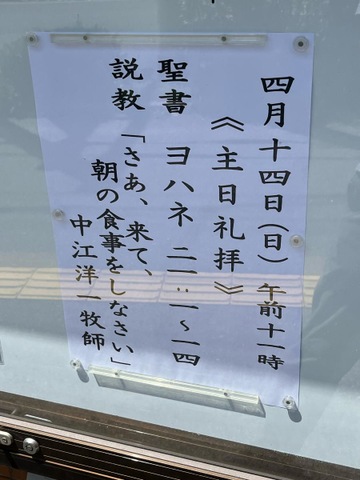 四月十四日(日) 午前十一時
《主日礼拝》
聖書 ヨハネ 二一:一~一四
説教 「さあ、来て、
朝の食事をしなさい」
中江洋一牧師